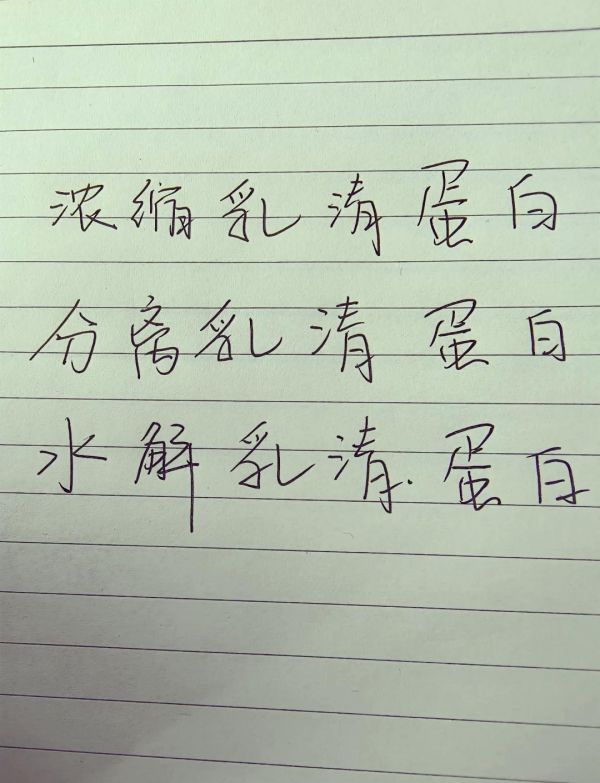 浓缩乳清蛋白
分离乳清蛋白
水解乳清蛋白